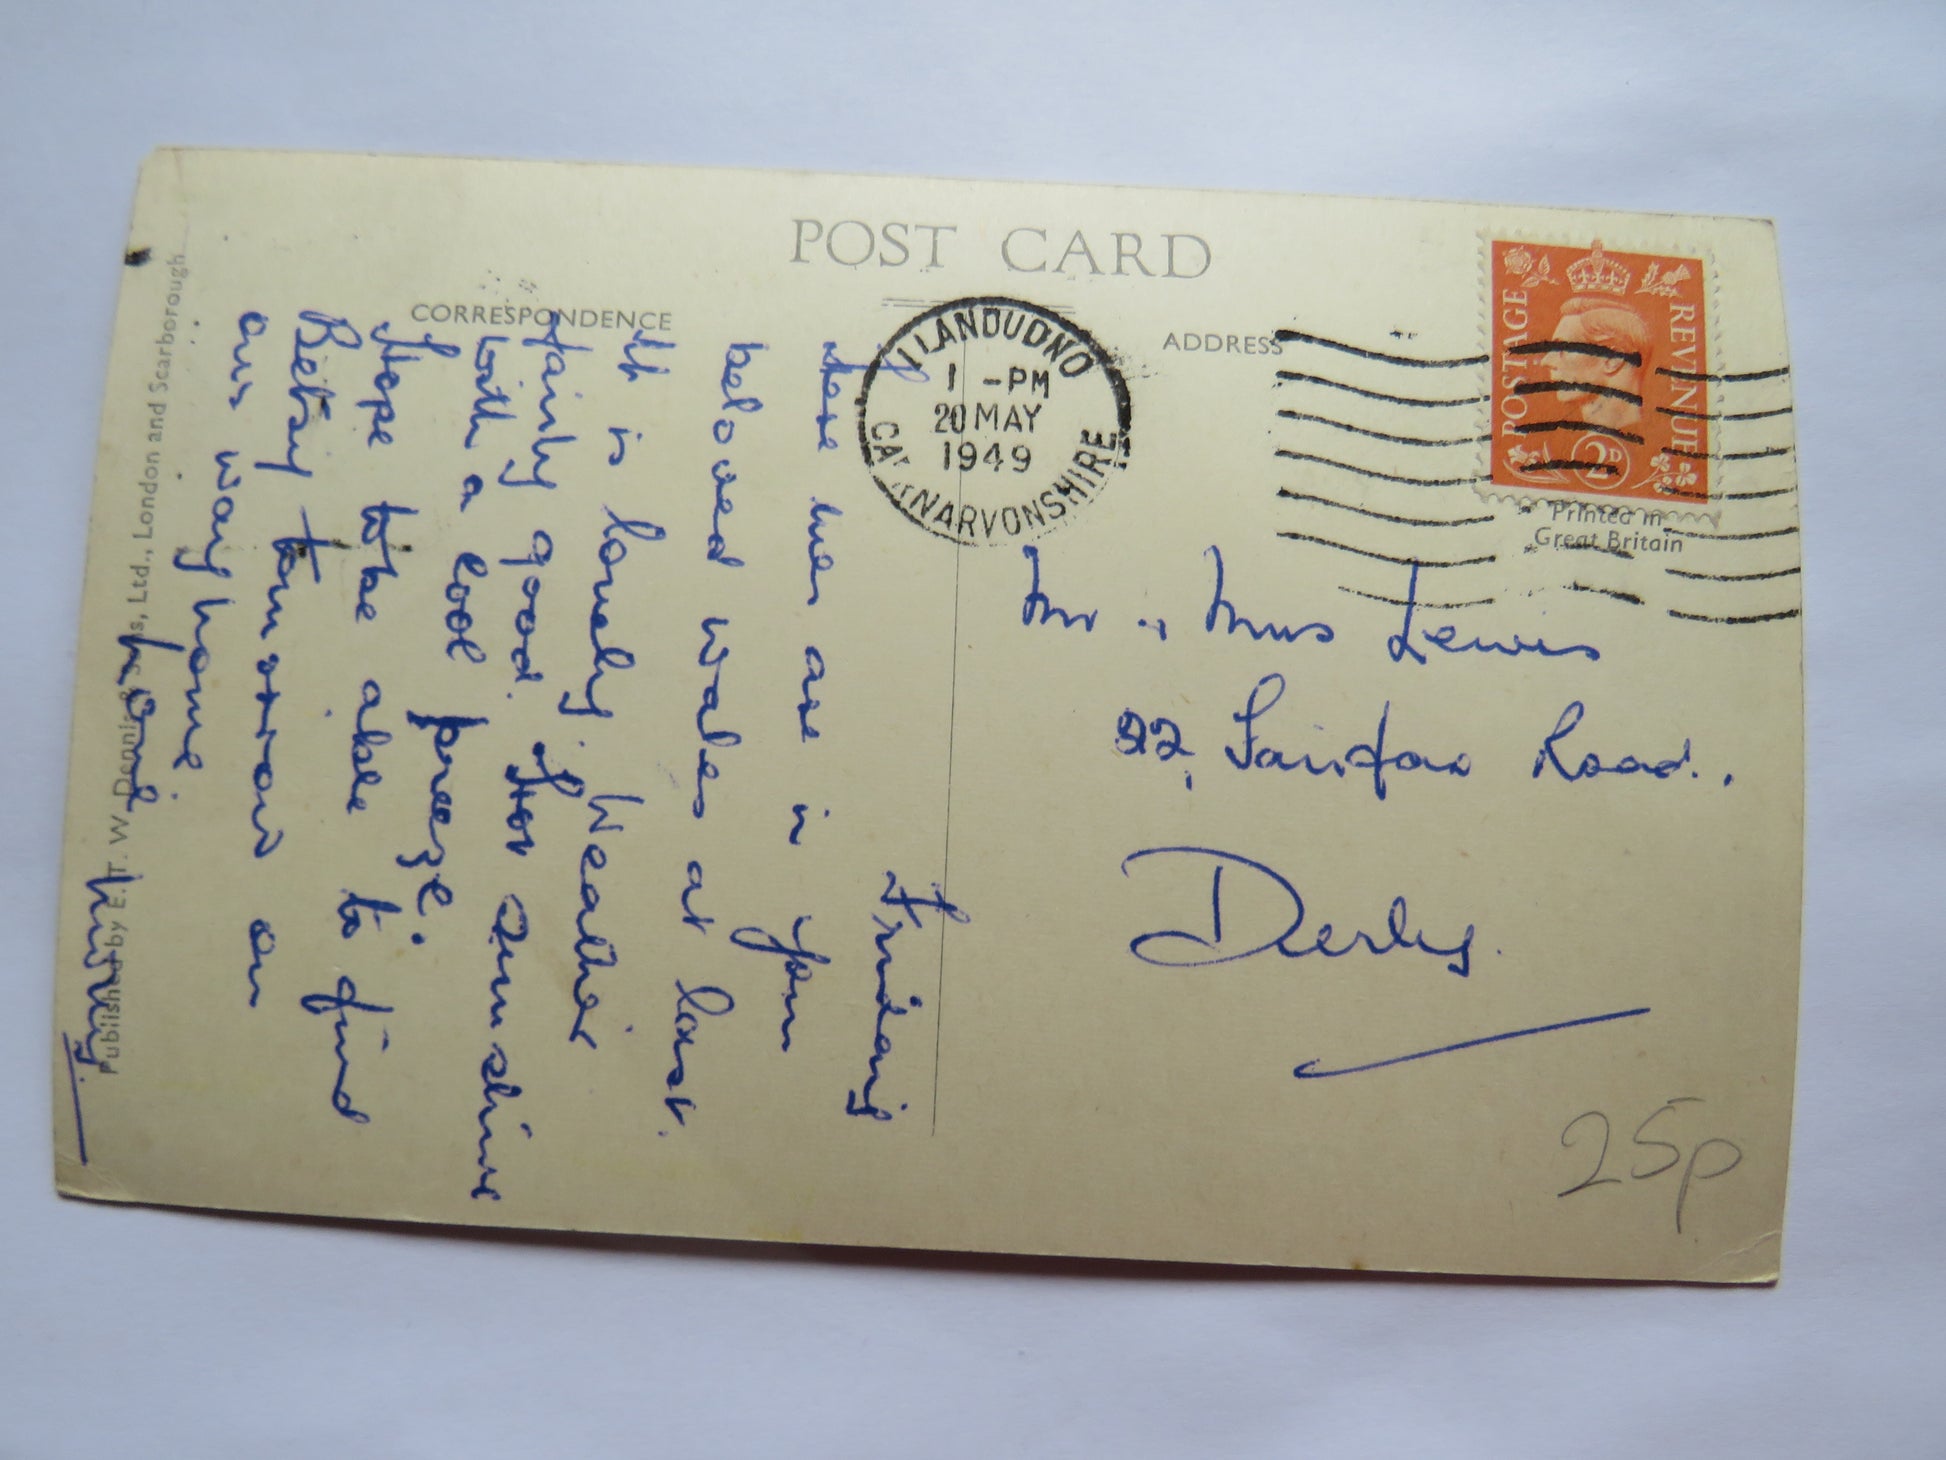 POST CARD
CORRESPONDENCE
ADDRESS
LLANDUDNO
1 -PM
20 MAY
1949
CAERNARVONSHIRE
POSTAGE
REVENUE
2D
Printed in
Great Britain
Friday
Here we are in your
beloved Wales at last.
It is lovely. Weather
fairly good. Hot sunshine
with a cool breeze.
Hope to be able to find
Betsy tomorrow on
our way home
Mr & Mrs Lewis
22, Fairfax Road.,
Derby.
25p
Published by E. T. W. Dennis & Sons, Ltd., London and Scarborough